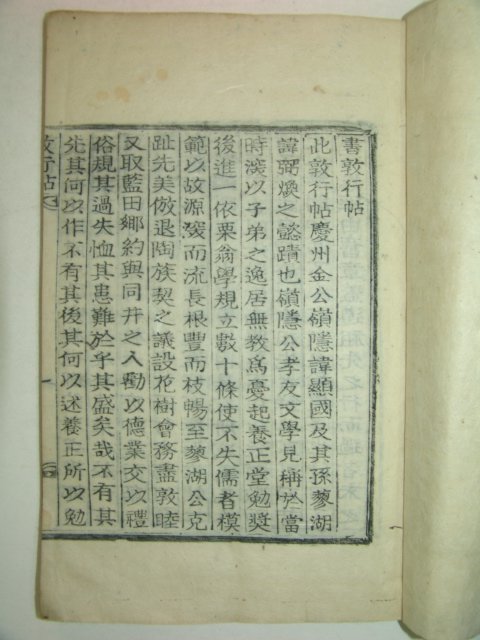 書敦行帖
此敦行帖慶州金公嶺隱諱顯國及其孫蓼湖
諱弼煥之懿蹟也嶺隱公孝友文學見稱於當
時深以子弟之逸居無教爲憂起養正堂勉奬
後進一依栗翁學規立數十條使不失儒者模
範以故源濬而流長根豐而枝暢至蓼湖公克
趾先美倣退陶族契之議設花樹會務盡敦睦
又取藍田鄕約與同井之人勸以德業交以禮
俗規其過失恤其患難於乎其盛矣哉不有其
先其何以作不有其後其何以述養正所以勉
敦行帖